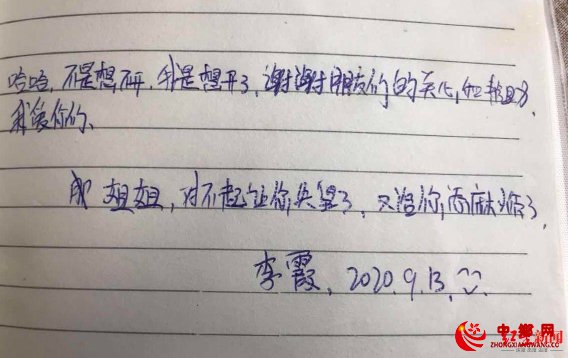 哈哈，不是想不开，我是想开了，谢谢朋友们的关心，和帮助，
我爱你们、
成姐姐，对不起让你失望了，又给你添麻烦了，
李霞，2020.9.13.
红星新闻
中乡网
ZHONGXIANGWANG.CC